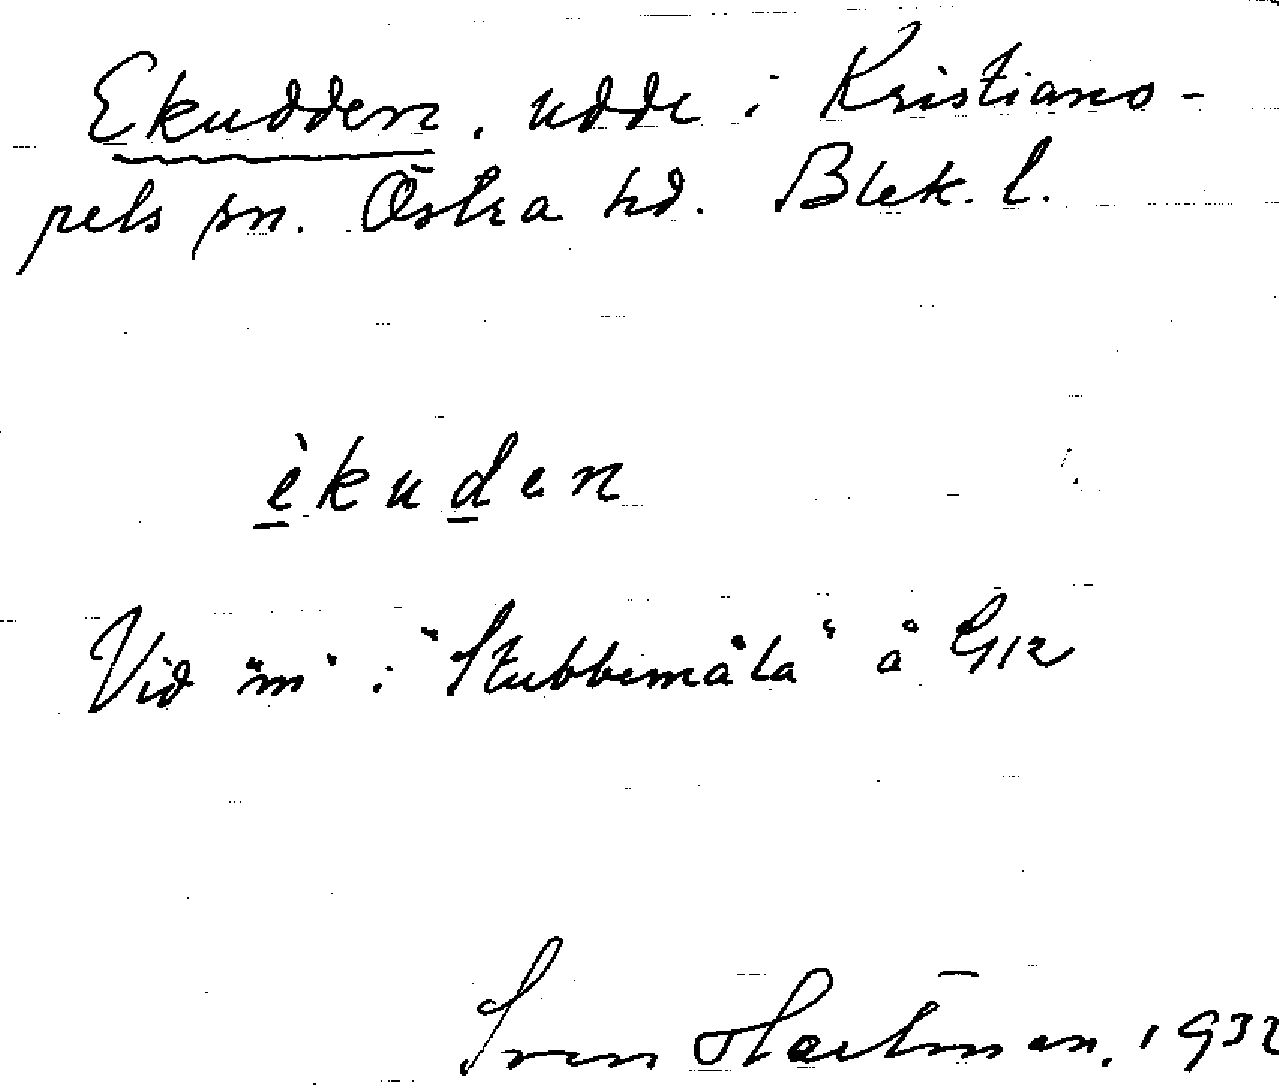 Ekudden, udde i Kristiano-
pels sn. Östra hd. Blek. l.
èkuden
Vid "m" i "Stubbemåla" å GK
Sven Hartman. 1932